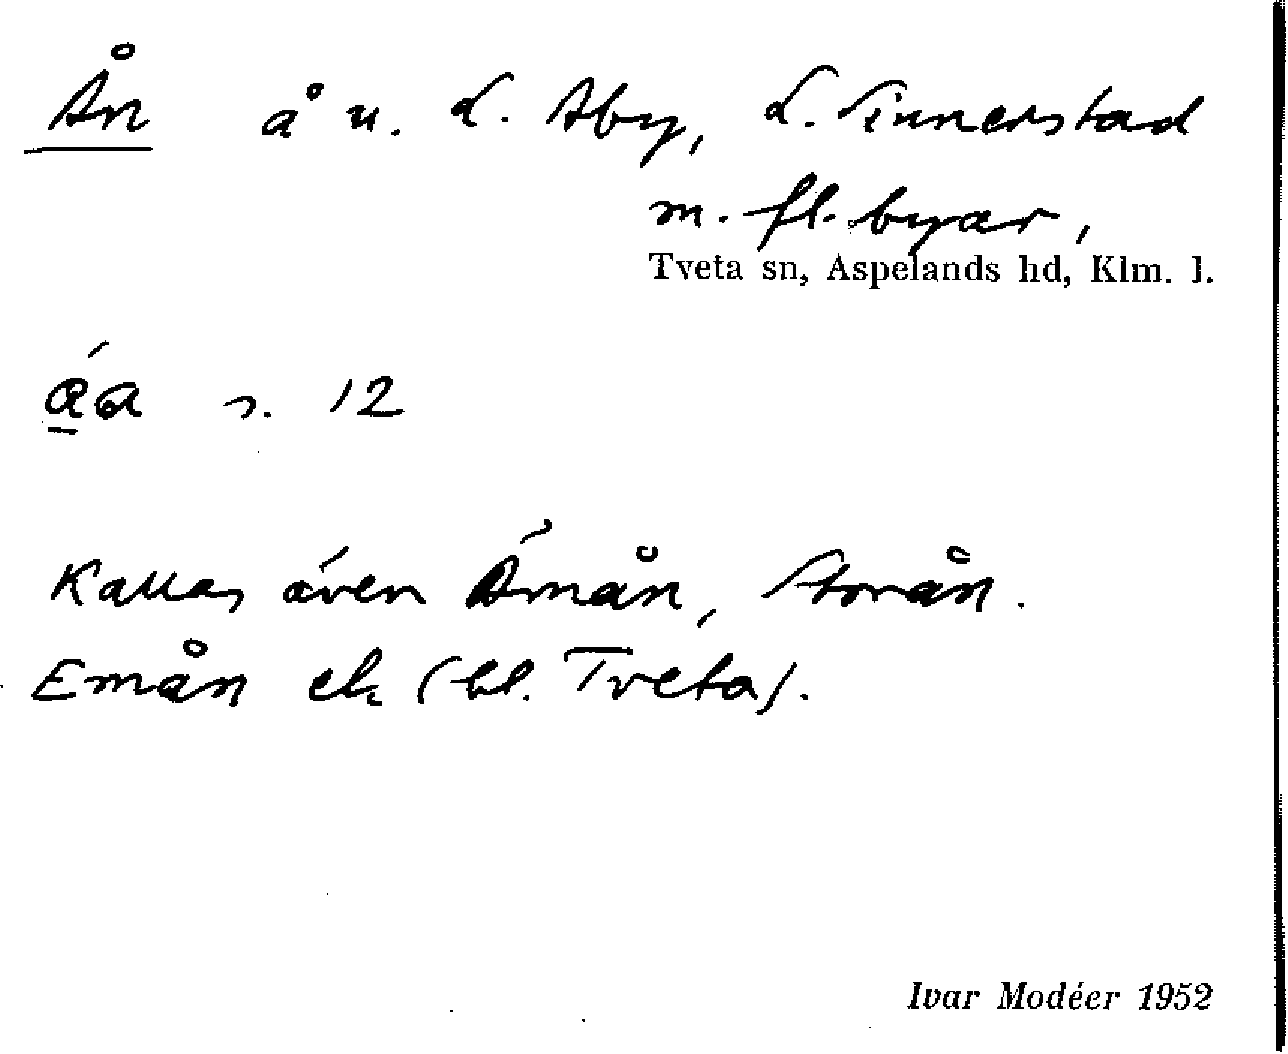 Ån å u. L. Åby, L. Sinnerstad
m. fl. byar,
Tveta sn, Aspelands hd, Klm. l.
áa s. 12
Kallas även Ämån, Storån.
Emån ek (bl. Tveta).
Ivar Modéer 1952